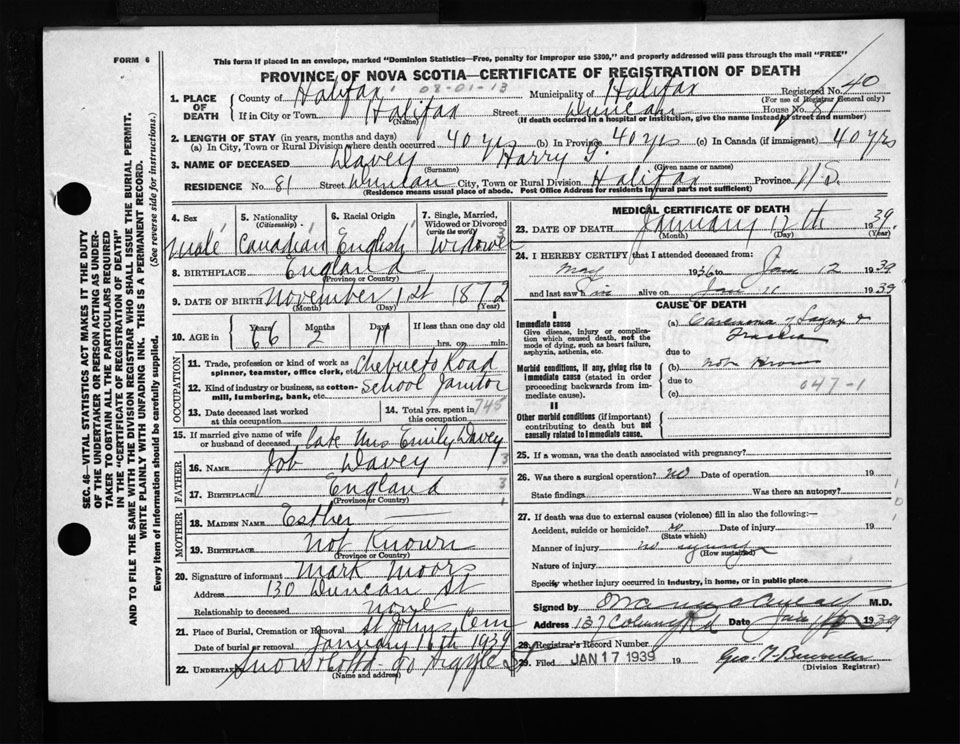 FORM 6
This form if placed in an envelope, marked "Dominion Statistics—Free, penalty for improper use $300," and properly addressed will pass through the mail "FREE"
PROVINCE OF NOVA SCOTIA—CERTIFICATE OF REGISTRATION OF DEATH
08-01-13
1. PLACE OF DEATH
County of Halifax Municipality of Halifax Registered No. 40
(For use of Registrar General only)
If in City or Town Halifax Street Duncan House No. 81
(Name) (If death occurred in a hospital or institution, give the name instead of street and number)
2. LENGTH OF STAY (in years, months and days)
(a) In City, Town or Rural Division where death occurred 40 yrs (b) in Province 40 yrs (c) in Canada (if immigrant) 40 yrs
3. NAME OF DECEASED Davey Harry G.
(Surname) (Given name or names)
RESIDENCE No. 81 Street Duncan City, Town or Rural Division Halifax Province N.S.
(Residence means usual place of abode. Post Office Address for residents in rural parts not sufficient)
SEC. 46—VITAL STATISTICS ACT MAKES IT THE DUTY OF THE UNDERTAKER OR PERSON ACTING AS UNDERTAKER TO OBTAIN ALL THE PARTICULARS REQUIRED IN THE "CERTIFICATE OF REGISTRATION OF DEATH"
AND TO FILE THE SAME WITH THE DIVISION REGISTRAR WHO SHALL ISSUE THE BURIAL PERMIT.
WRITE PLAINLY WITH UNFADING INK. THIS IS A PERMANENT RECORD.
Every item of Information should be carefully supplied. (See reverse side for instructions.)
4. Sex 5. Nationality (Citizenship) 6. Racial Origin 7. Single, Married, Widowed or Divorced (write the word)
Male Canadian English Widower
8. BIRTHPLACE England
(Province or Country)
9. DATE OF BIRTH November 1st 1872
(Month) (Day) (Year)
10. AGE in Years Months Days If less than one day old
66 2 11 hrs. or min.
OCCUPATION
11. Trade, profession or kind of work as spinner, teamster, office clerk, etc. Chebucto Road
12. Kind of industry or business, as cotton-mill, lumbering, bank, etc. School Janitor
13. Date deceased last worked at this occupation
14. Total yrs. spent in this occupation 745
15. If married give name of wife or husband of deceased late Mrs Emily Davey
FATHER
16. NAME Job Davey 3
17. BIRTHPLACE England 3
(Province or Country)
MOTHER
18. MAIDEN NAME Esther
19. BIRTHPLACE Not Known
(Province or Country)
20. Signature of informant Mark Moors
Address 130 Duncan St
Relationship to deceased none
21. Place of Burial, Cremation or Removal St Johns Cem
Date of burial or removal January 16th 1939
22. UNDERTAKER Snow & Co Ltd 90 Argyle St
(Name and address)
MEDICAL CERTIFICATE OF DEATH
23. DATE OF DEATH January 12th 1939
(Month) (Day) (Year)
24. I HEREBY CERTIFY that I attended deceased from:
May 1936 to Jan 12 1939
and last saw him alive on Jan 11 1939
CAUSE OF DEATH
I
Immediate cause
Give disease, injury or complication which caused death, not the mode of dying, such as heart failure, asphyxia, asthenia, etc.
(a) Carcinoma of Larynx & Trachea
due to
Morbid conditions, if any, giving rise to immediate cause (stated in order proceeding backwards from immediate cause).
(b) not known
due to 047-1
(c)
II
Other morbid conditions (if important) contributing to death but not causally related to immediate cause.
25. If a woman, was the death associated with pregnancy?
26. Was there a surgical operation? no Date of operation 19
State findings Was there an autopsy?
27. If death was due to external causes (violence) fill in also the following:—
Accident, suicide or homicide? no Date of injury 19
(State which)
Manner of injury no injury
(How sustained)
Nature of injury
Specify whether injury occurred in industry, in home, or in public place
Signed by M.D.
Address 137 Date Jan 1939
28. Registrar's Record Number
29. Filed JAN 17 1939 19 Geo. F.
(Division Registrar)